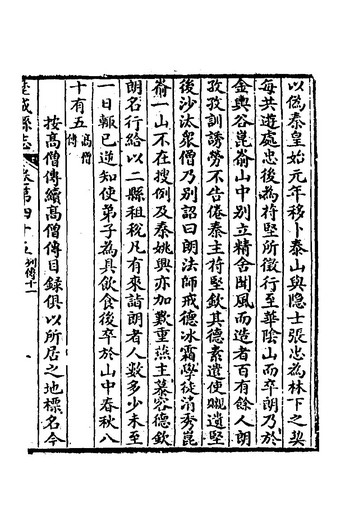 以偽秦皇始元年移卜泰山與隱士張忠為林下之契
每共遊處忠後為苻堅所徵行至華陰山而卒朗乃於
金輿谷崑崙山中別立精舍聞風而造者百有餘人朗
孜孜訓誘勞不告倦秦主苻堅欽其德素遣使贈遺堅
後沙汰衆僧乃別詔曰朗法師戒德冰霜學徒清秀崑
崙一山不在搜例及秦姚興亦加歎重燕主慕容德欽
朗名行給以二縣租稅凡有來詣朗者人數多少未至
一日輒已逆知使弟子為具飲食後卒於山中春秋八
十有五高僧傳
按高僧傳續高僧傳目錄俱以所居之地標名今
歷城縣志 卷第四十五 列傳十一